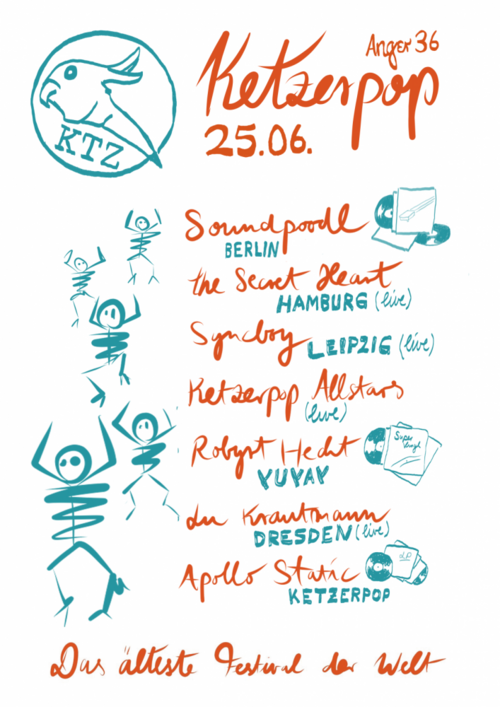 KTZ
Anger 36
Ketzerpop
25.06.
Soundpoodle
BERLIN
the Secret Heart
HAMBURG (live)
Syncboy
LEIPZIG (live)
Ketzerpop Allstars
(live)
Robyrt Hecht
YUYAY
Super tough
du Krautmann
DRESDEN (live)
LP
Apollo Static
KETZERPOP
Das älteste Festival der Welt